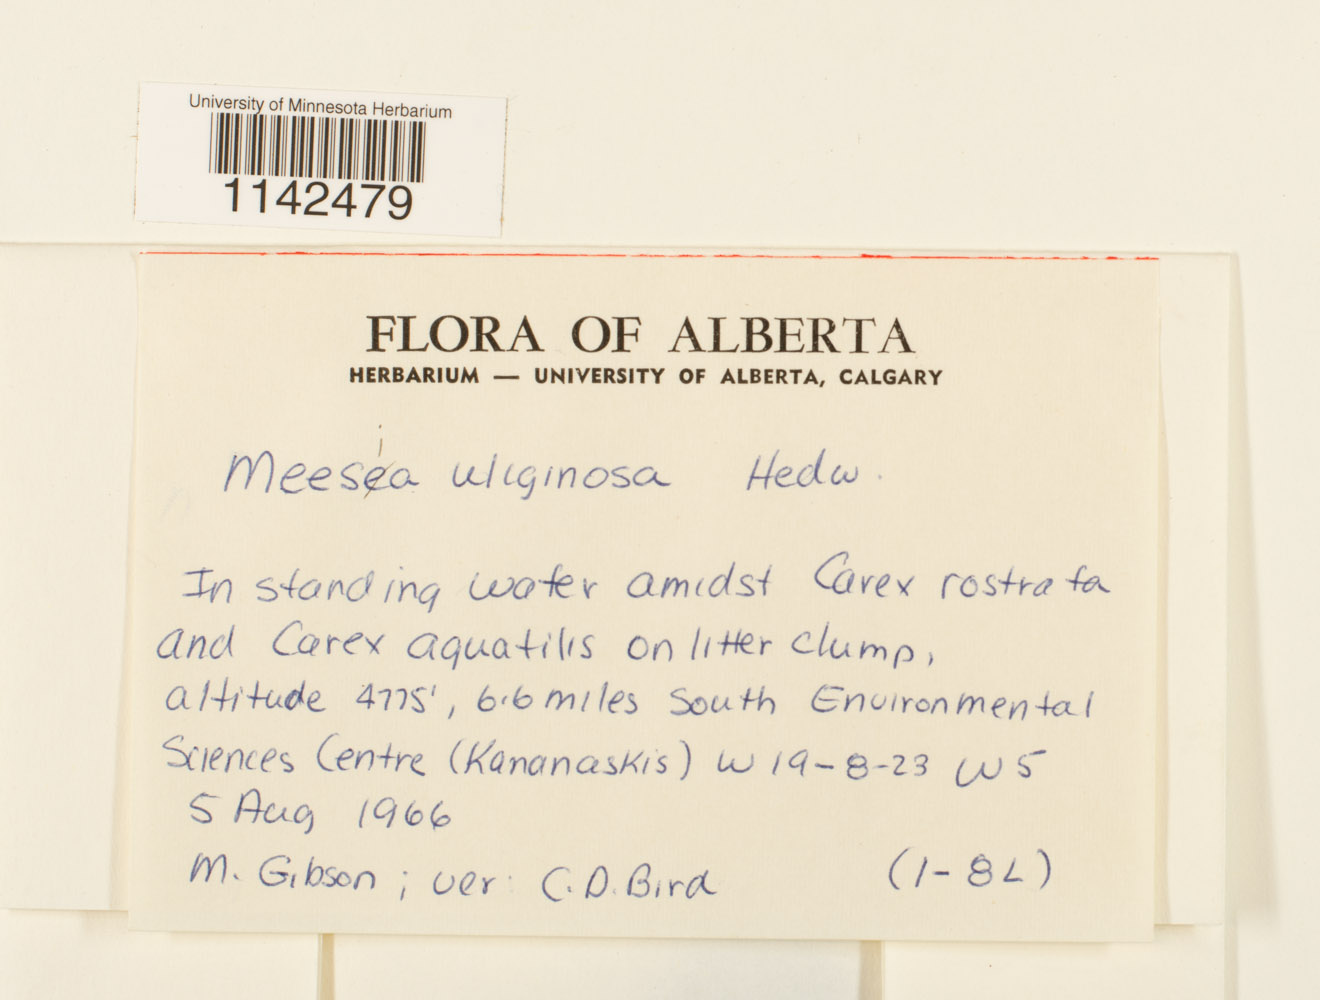 University of Minnesota Herbarium
1142479
FLORA OF ALBERTA
HERBARIUM — UNIVERSITY OF ALBERTA, CALGARY
Meesia uliginosa Hedw.
In standing water amidst Carex rostrata
and Carex aquatilis on litter clump,
altitude 4775', 6.6 miles South Environmental
Sciences Centre (Kananaskis) W 19-8-23 W5
5 Aug 1966
M. Gibson; ver: C.D. Bird (1-8L)